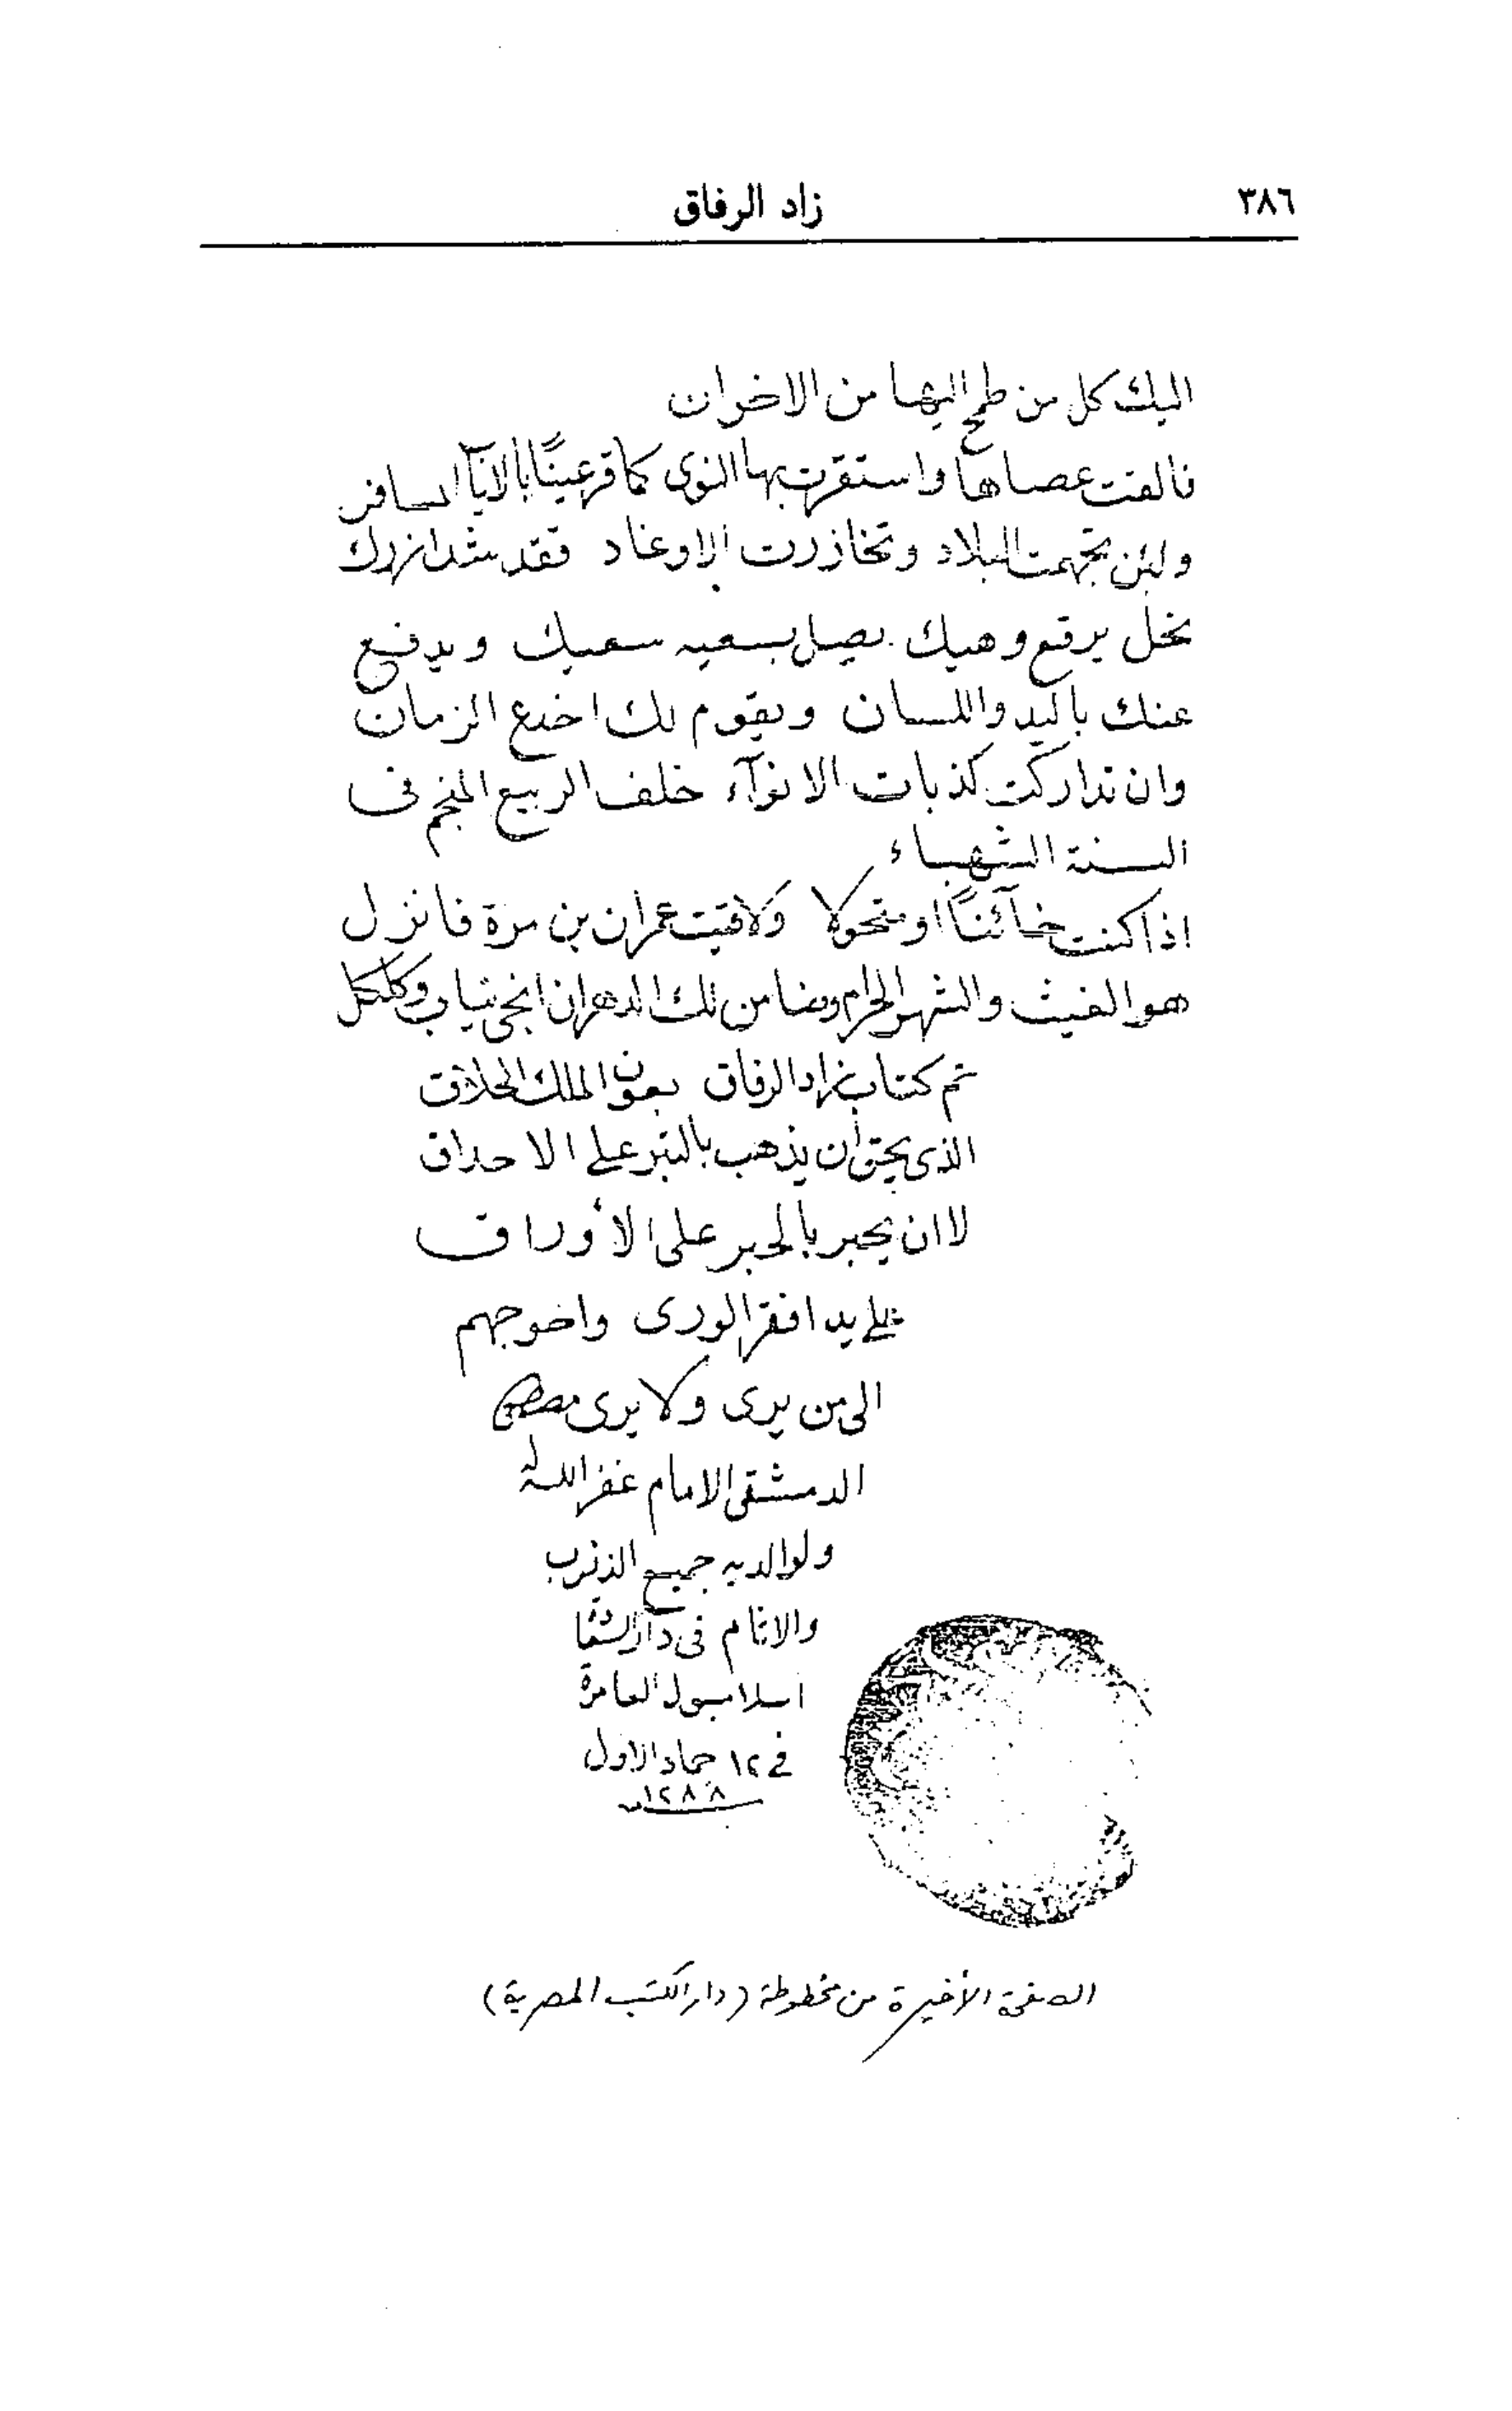 ٣٨٦
زاد الرفاق
اليك كل من طمح اليها من الاخوان
فالقت عصاها واستقرت بها النوى كما قر عينًا بالايآ المسافر
ولئن تجهمت البلاد وتخازرت الاوغاد فقد شد ازرك
نحل يرقع وهيك يصيل بسعيه سعيك ويدفع
عنك باليد واللسان ويقوم لك اخدع الزمان
وان تداركت كذبات الانوآء خلف الربيع المنجم فى
السنة الشهباء
اذا كنت خآئنًا او متحولا ولاقيت عمران بن مرة فانزل
هو الغيث والشهر الحرام وضامن لك الدهر ان انحى بناب وكلكل
تم كتاب زاد الرفاق بعون الملك الخلاق
الذى يحق أن يذهب بالتبر على الاحداق
لا ان يحبر بالحبر على الأوراق
على يد افقر الورى واحوجهم
الى من يرى ولا يرى مصطفى
الدمشقى الامام غفر الله له
ولوالديه جميع الذنوب
والاثام فى دار
اسلامبول العامرة
فى ١٢ جماد الاول
١٢٨٨
الصفحة الأخيرة من مخطوطة (دار الكتب المصرية)